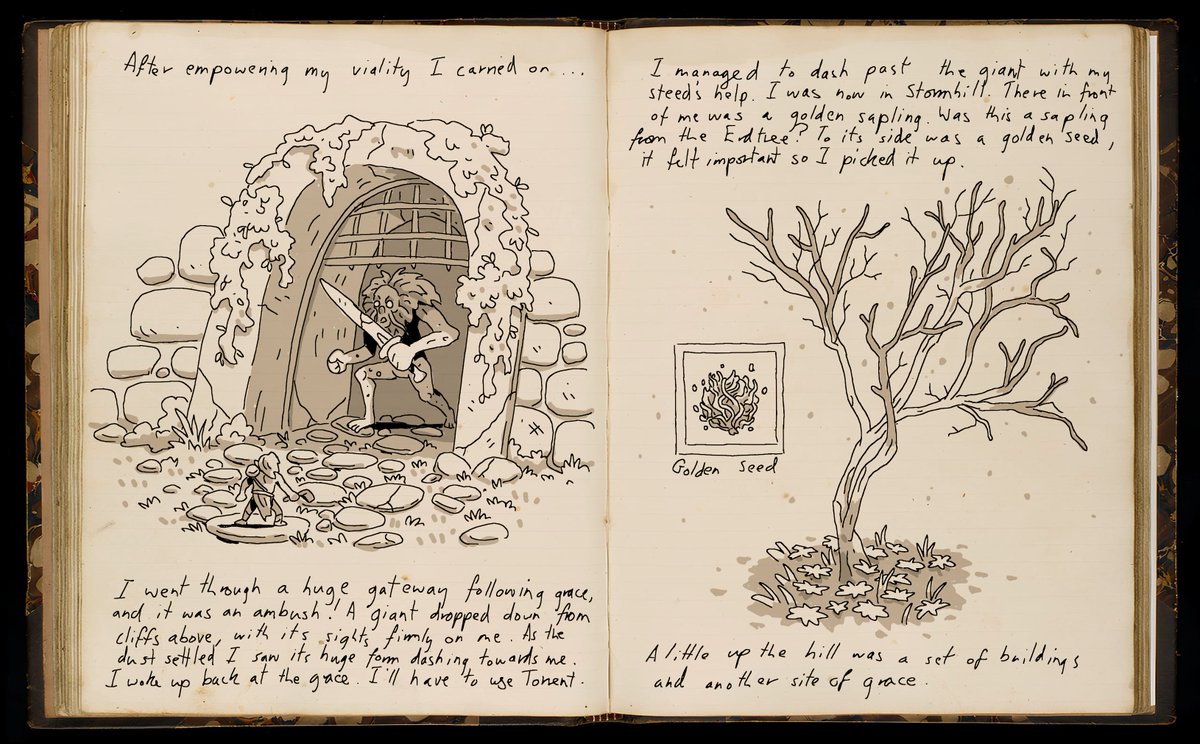 After empowering my viality I carried on ...
I went through a huge gateway following grace,
and it was an ambush! A giant dropped down from
cliffs above, with its sights firmly on me. As the
dust settled I saw its huge form dashing towards me.
I woke up back at the grace. I'll have to use Torrent.
I managed to dash past the giant with my
steed's help. I was now in Stormhill. There in front
of me was a golden sapling. Was this a sapling
from the Erdtree? To its side was a golden seed,
it felt important so I picked it up.
Golden Seed
A little up the hill was a set of buildings
and another site of grace.